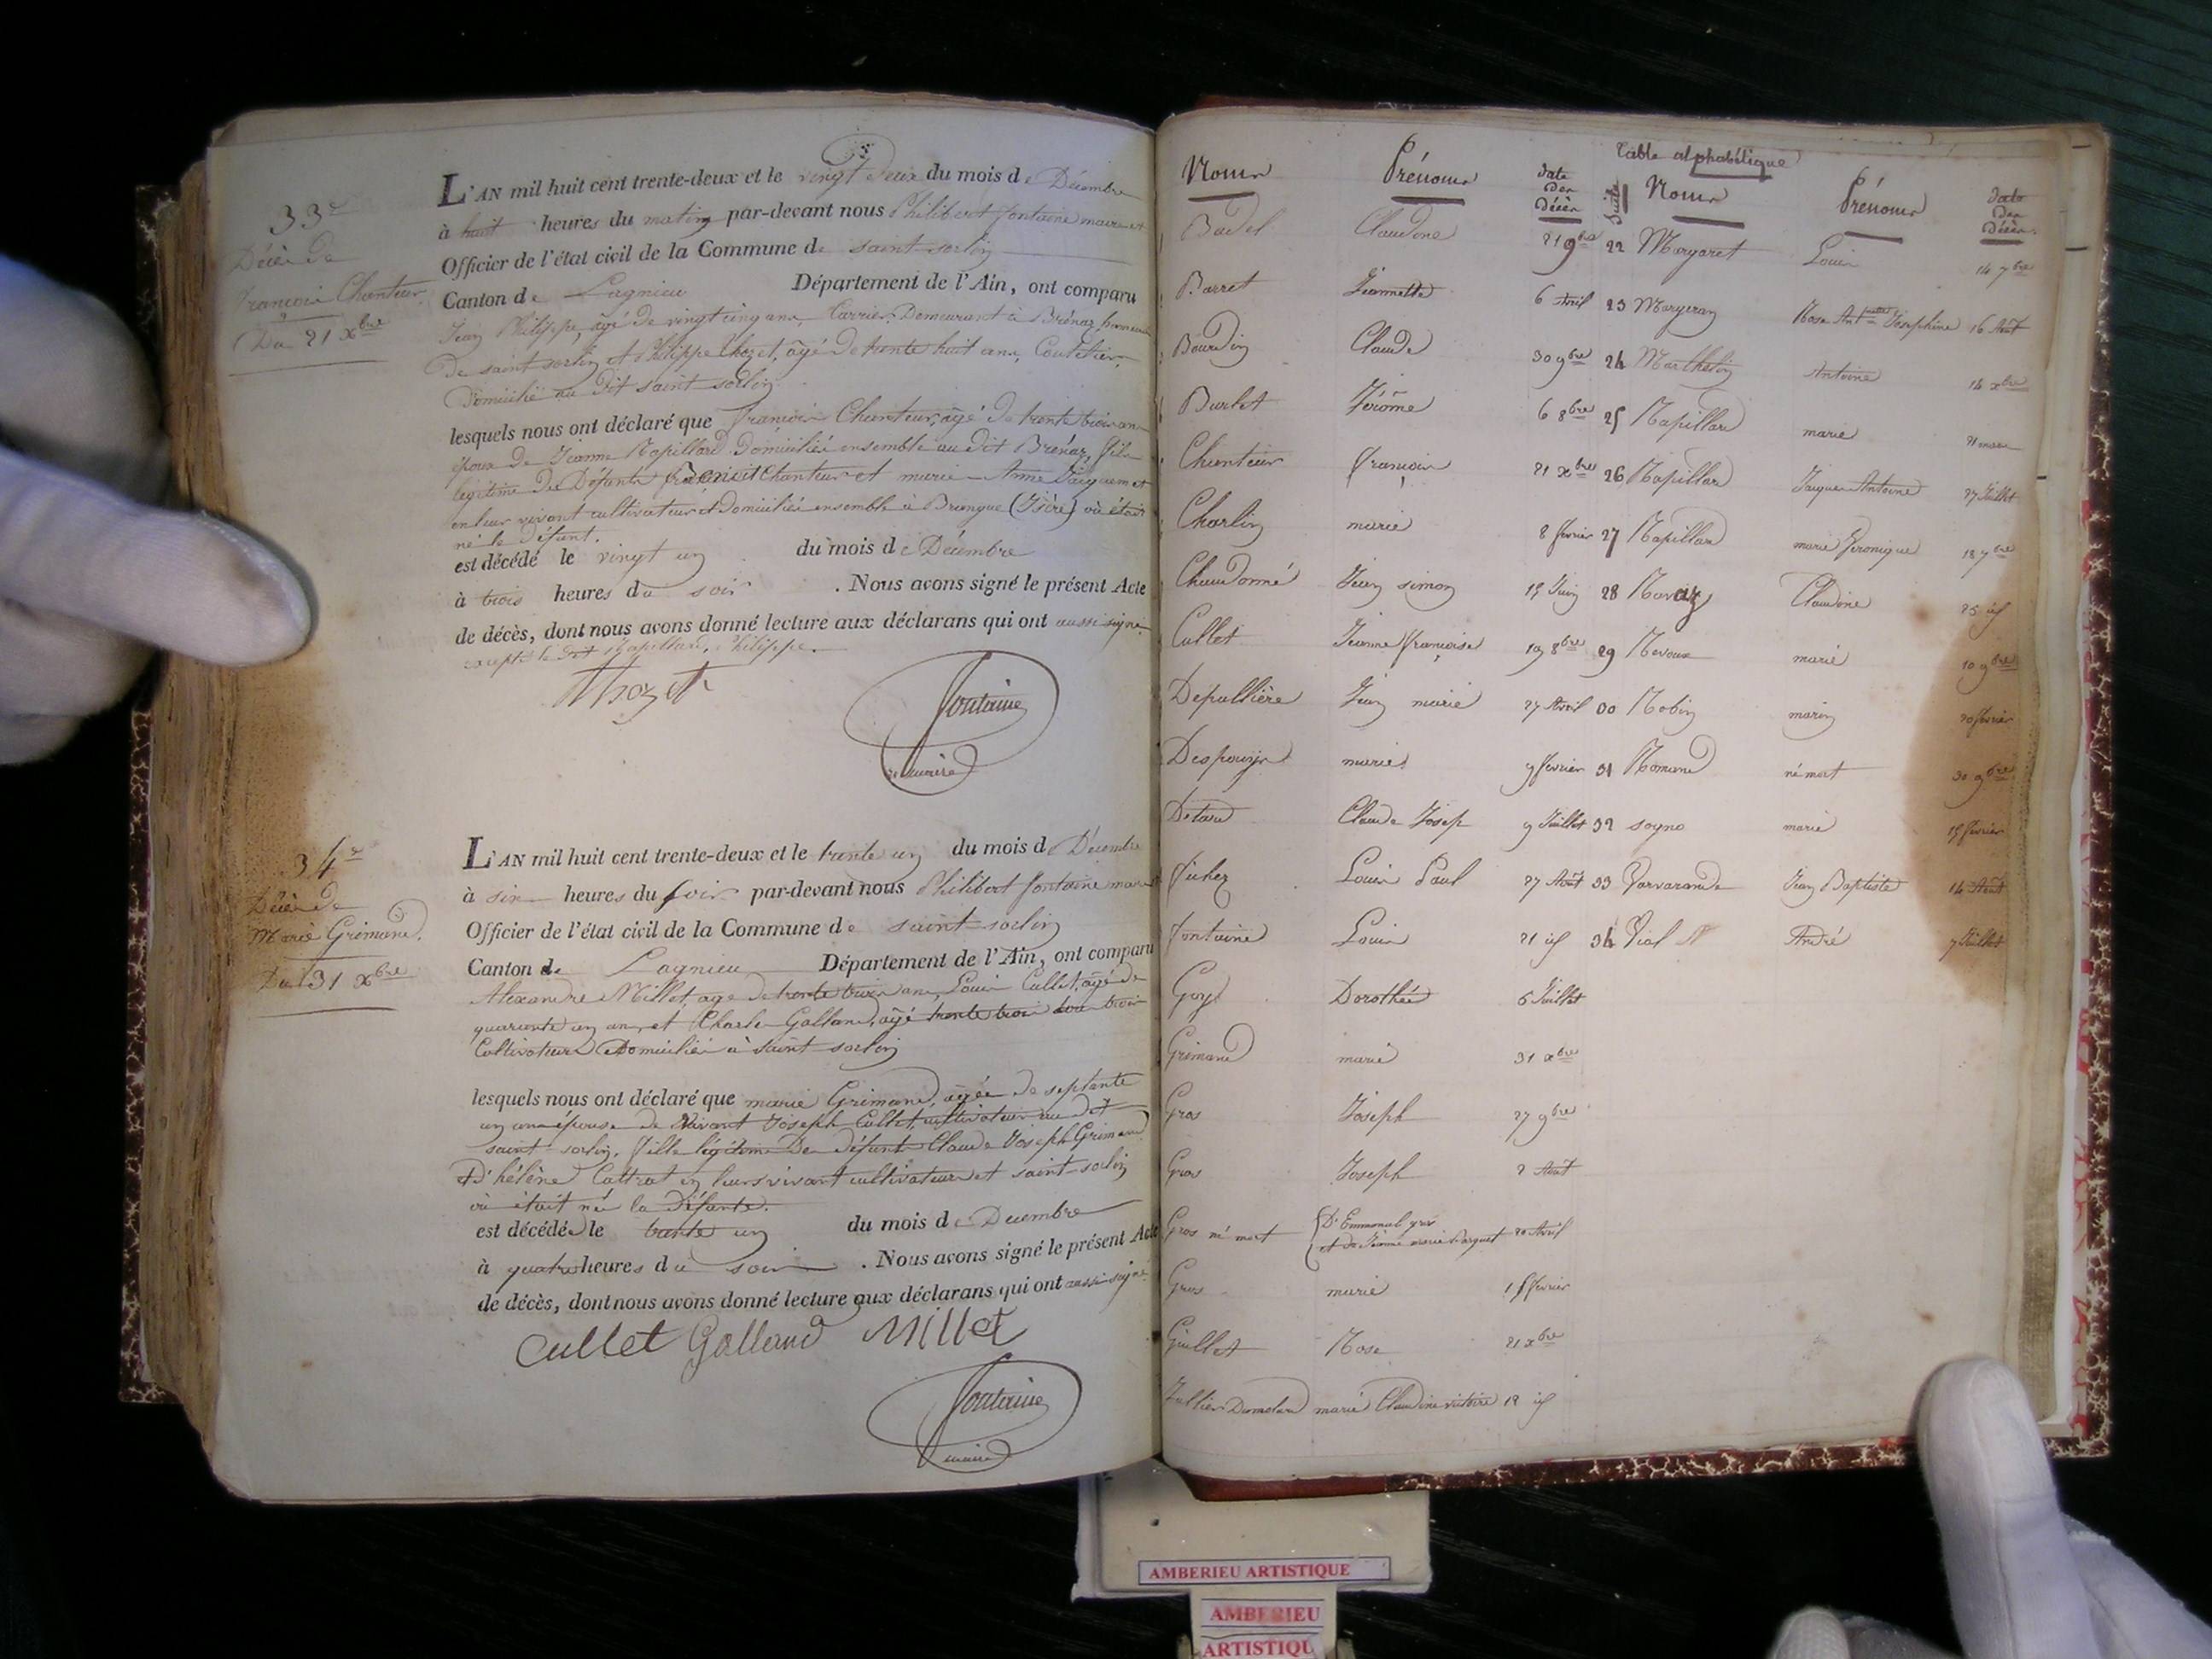 33e
Décès de
françois Chanteur.
Du 21 Xbre
L'AN mil huit cent trente-deux et le vingt deux du mois de Décembre
à huit heures du matin par-devant nous Philibert fontaine maire et
Officier de l'état civil de la Commune de saint-sorlin
Canton de Lagnieu Département de l'Ain, ont comparu
Jean Philippe, âgé de vingt cinq ans, Carrier, Demeurant à Brénaz, hameau
de saint sorlin et Philippe thozet, âgé de trente huit ans, Coutelier,
Domicilié au dit saint sorlin
lesquels nous ont déclaré que françois Chanteur, âgé de trente trois ans
époux de Jeanne Rapillard Domiciliés ensemble au dit Brénaz, fils
légitime des Défunts Benoit Chanteur et marie-Anne Jaiquemet
en leur vivant cultivateurs et Domiciliés ensemble à Brangue (Isère) où était
né le Défunt.
est décédé le vingt un du mois de Décembre
à trois heures du soir. Nous avons signé le présent Acte
de décès, dont nous avons donné lecture aux déclarans qui ont aussi signé
excepté le dit Rapillard, Philippe.
thozet
fontaine
maire
34e
Décès de
Marie Grimand.
Du 31 Xbre
L'AN mil huit cent trente-deux et le trente un du mois de Décembre
à six heures du soir par-devant nous Philibert fontaine maire
Officier de l'état civil de la Commune de saint-sorlin
Canton de Lagnieu Département de l'Ain, ont comparu
Alexandre Millet, age de trente trois ans, Louis Cullet, âgé de
quarante un ans, et Charle Galland, âgé trente trois tous trois
Cultivateurs Domiciliés à saint-sorlin
lesquels nous ont déclaré que marie Grimand, agée de septante
un ans épouse de vivant Joseph Cullet, cultivateur au dit
saint-sorlin, fille légitime de défunts Claude Joseph Grimand
& D'hélène Cattrat en leurs vivant cultivateurs et saint-sorlin
où était née la Défunte.
est décédée le trente un du mois de Decembre
à quatre heures du soir. Nous avons signé le présent Acte
de décès, dont nous avons donné lecture aux déclarans qui ont aussi signé
Cullet Galland Millet
fontaine
maire
Table alphabétique
Noms Prénoms date des Décès Suite Noms Prénoms date des Décès
Badel Claudine 21 9bre 22 Margaret Louis 14 7bre
Barret Jeannette 6 Avril 23 Margeron Rose Antette Josephine 16 Août
Bourdin Claude 30 9bre 24 Marthelin Antoine 14 xbre
Burlet Jérôme 6 8bre 25 Rapillard marie 21 mars
Chanteur françois 21 Xbre 26 Rapillard Jacques Antoine 27 Juillet
Charlin marie 8 fevrier 27 Rapillard marie Véronique 18 7bre
Chaudonné Jean simon 15 Juin 28 Ravaz Claudine 25 id
Cullet Jeanne françoise 19 8bre 29 Revoux marie 10 9bre
Depullière Jean marie 27 Avril 30 Robin marin 20 fevrier
Despouys marie 9 fevrier 31 Romand né mort 30 9bre
Detard Claude Josep 9 Juillet 32 sogno marie 15 fevrier
fichez Louis Paul 27 Août 33 Varvarande Jean Baptiste 14 Août
fontaine Louis 21 id 34 Vial André 7 Juillet
Guy Dorothée 6 Juillet
Grimand marie 31 xbre
Gros Joseph 27 9bre
Gros Joseph 2 Août
Gros né mort D'Emmanuel gros
et de Jeanne marie Parquet 20 Avril
Gros marie 15 fevrier
Guillet Rose 21 xbre
Jullien Dumolard marie Claudine victoire 12 id
AMBERIEU ARTISTIQUE
AMBERIEU
ARTISTIQU